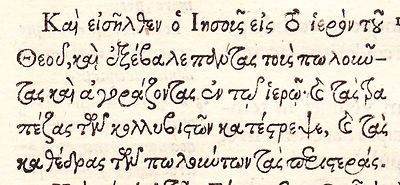 Καὶ εἰσῆλθεν ὁ Ἰησοῦς εἰς τὸ ἱερὸν τοῦ
Θεοῦ, καὶ ἐξέβαλε πάντας τοὺς πωλοῦν-
τας καὶ ἀγοράζοντας ἐν τῷ ἱερῷ· καὶ τὰς τρα
πέζας τῶν κολλυβιστῶν κατέστρεψε, καὶ τὰς
καθέδρας τῶν πωλούντων τὰς περιστεράς.